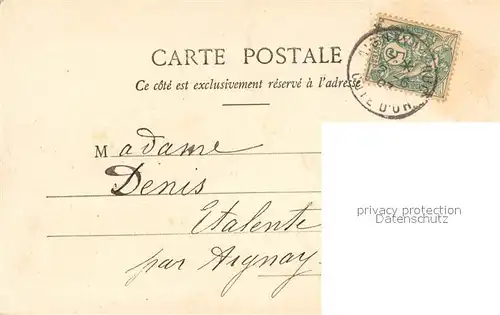 CARTE POSTALE
Ce côté est exclusivement réservé à l'adresse
Madame
Denis
Etalente
par Aignay
privacy protection
Datenschutz
CÔTE D'OR